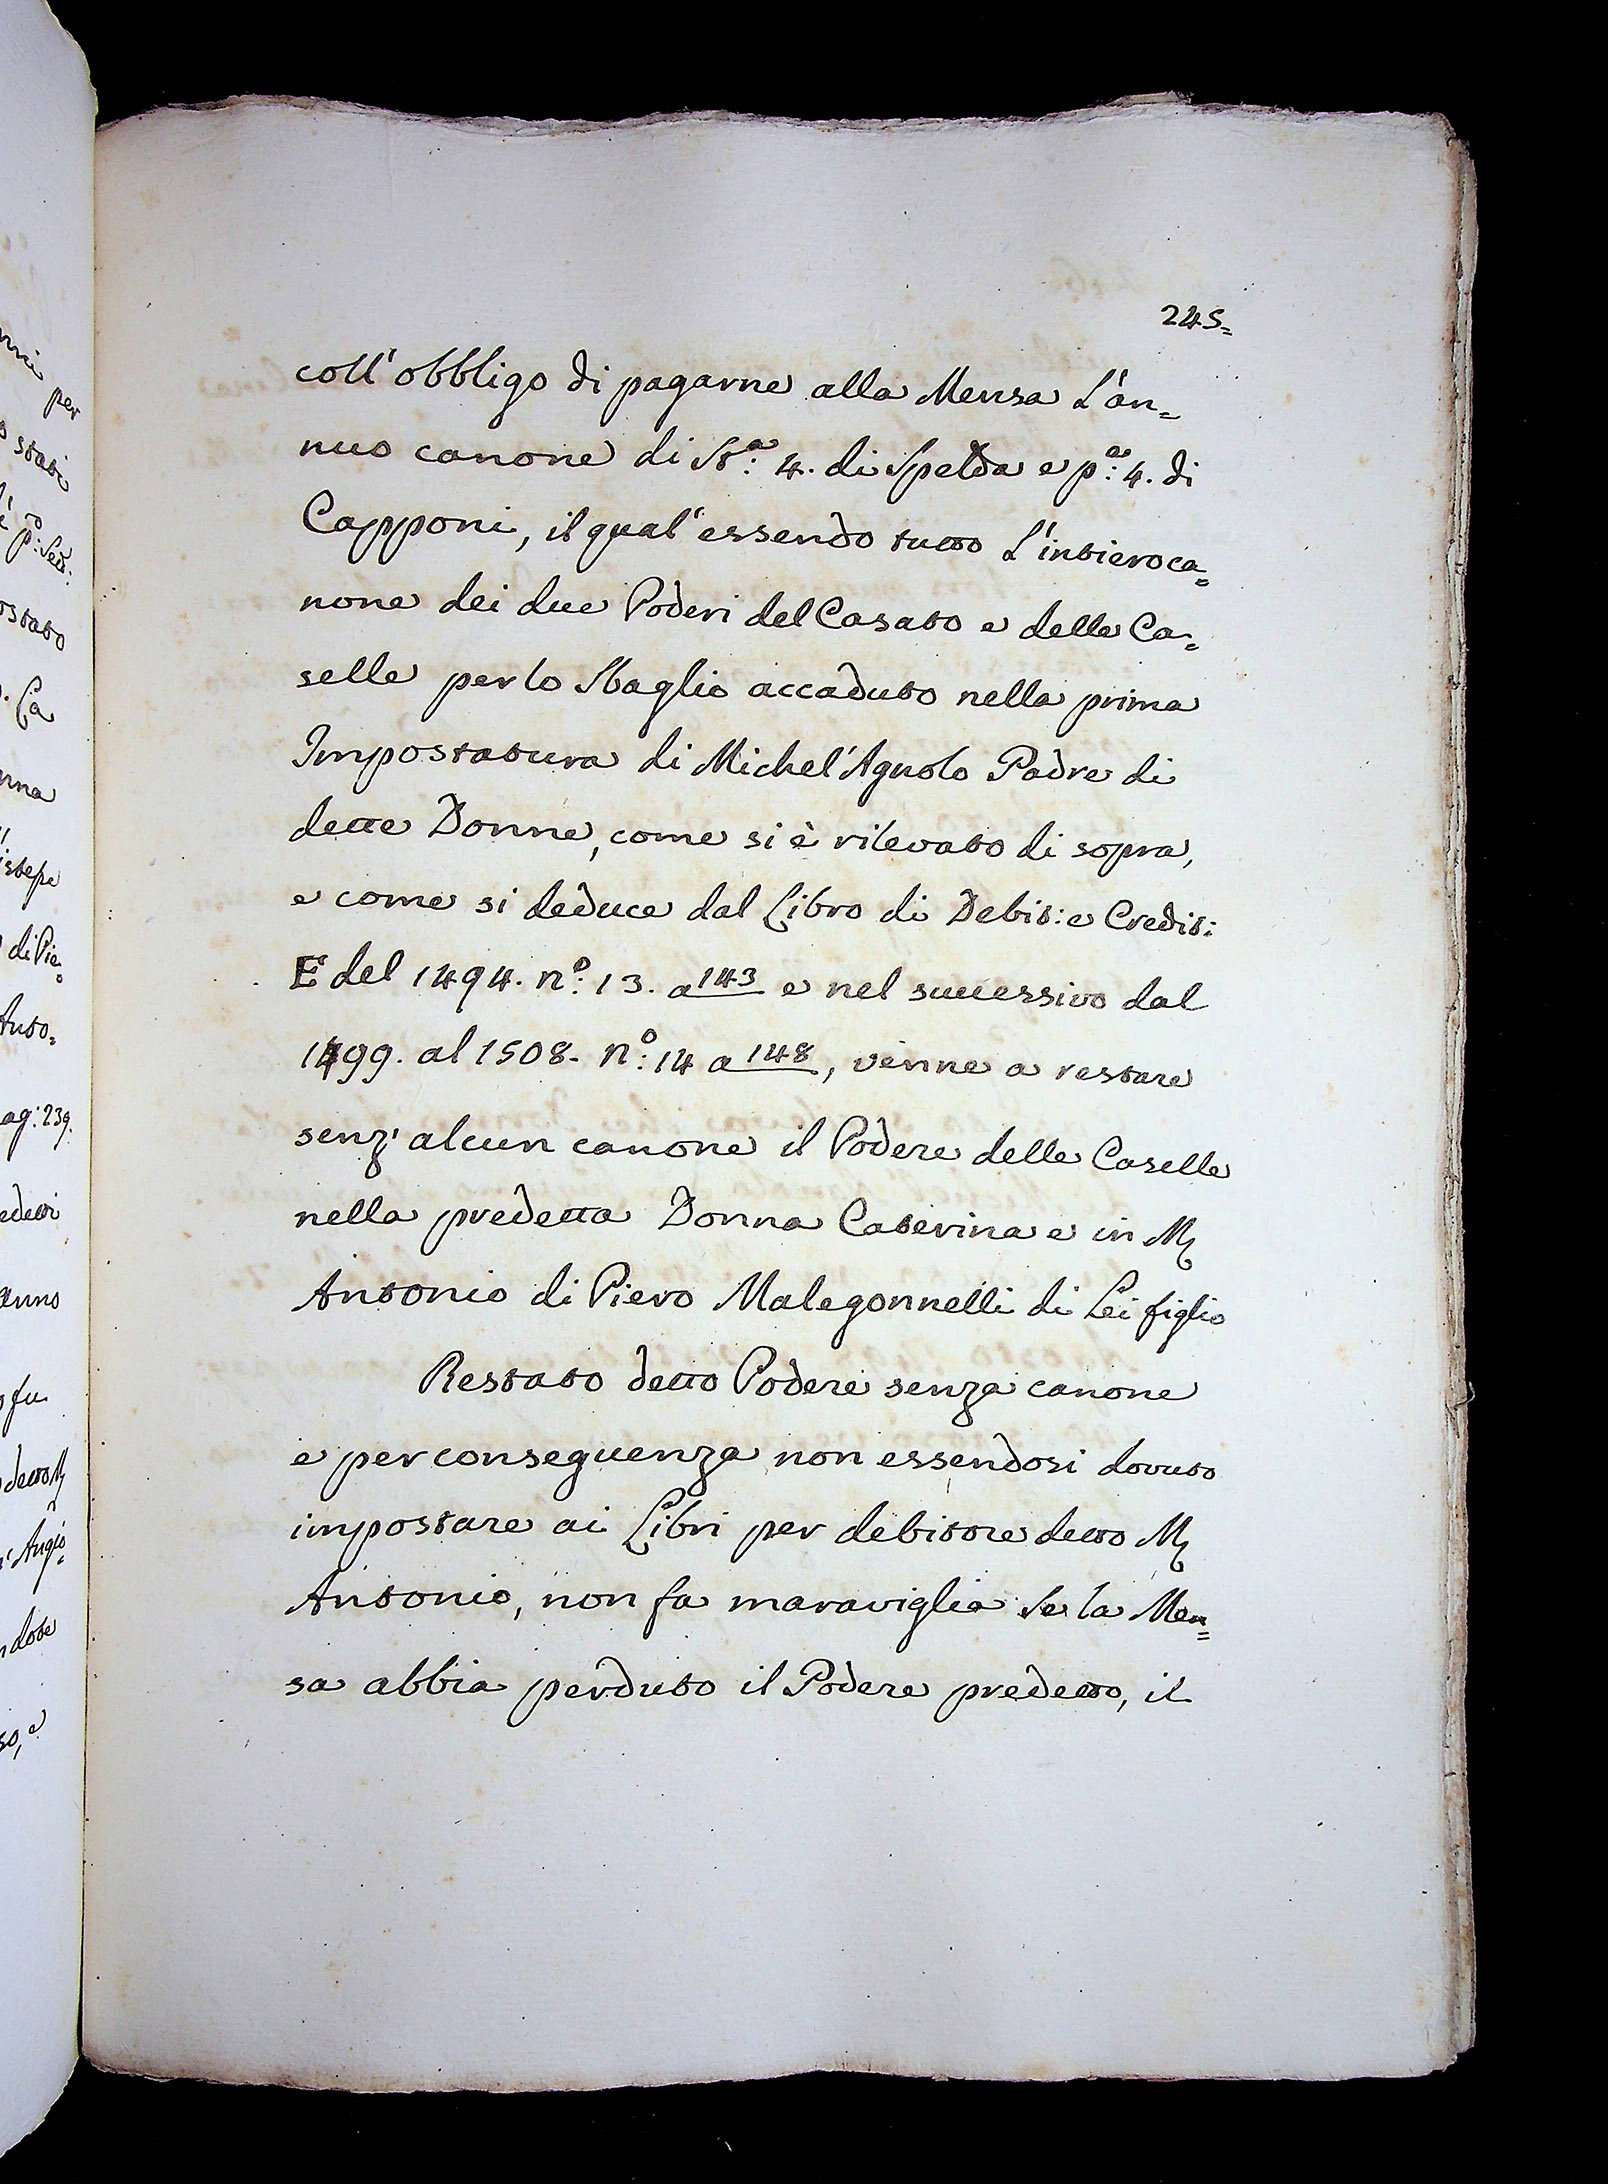 245=
coll'obbligo di pagarne alla Mensa L'an=
nuo canone di St:ª 4. di Spelda e p:ª 4. di
Capponi, il qual' essendo tutto L'intiero ca=
none dei due Poderi del Casato e delle Ca=
selle per lo Sbaglio accaduto nella prima
Impostatura di Michel'Agnolo Padre di
dette Donne, come si è rilevato di sopra,
e come si deduce dal Libro di Debit: e Credit:
E del 1494. n:º 13. a 143 e nel successivo dal
1499. al 1508. n:º 14 a 148, venne a restare
senz'alcun canone il Podere delle Caselle
nella predetta Donna Caterina e in M
Antonio di Piero Malegonnelli di Lei figlio
Restato detto Podere senza canone
e per conseguenza non essendosi dovuto
impostare ai Libri per debitore detto M
Antonio, non fa maraviglia Se la Men=
sa abbia perduto il Podere predetto, il